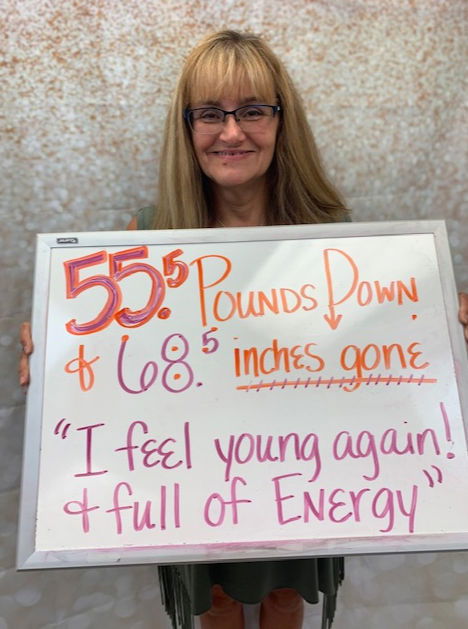 55.5 Pounds Down
& 68.5 inches gone
"I feel young again!
& full of Energy"